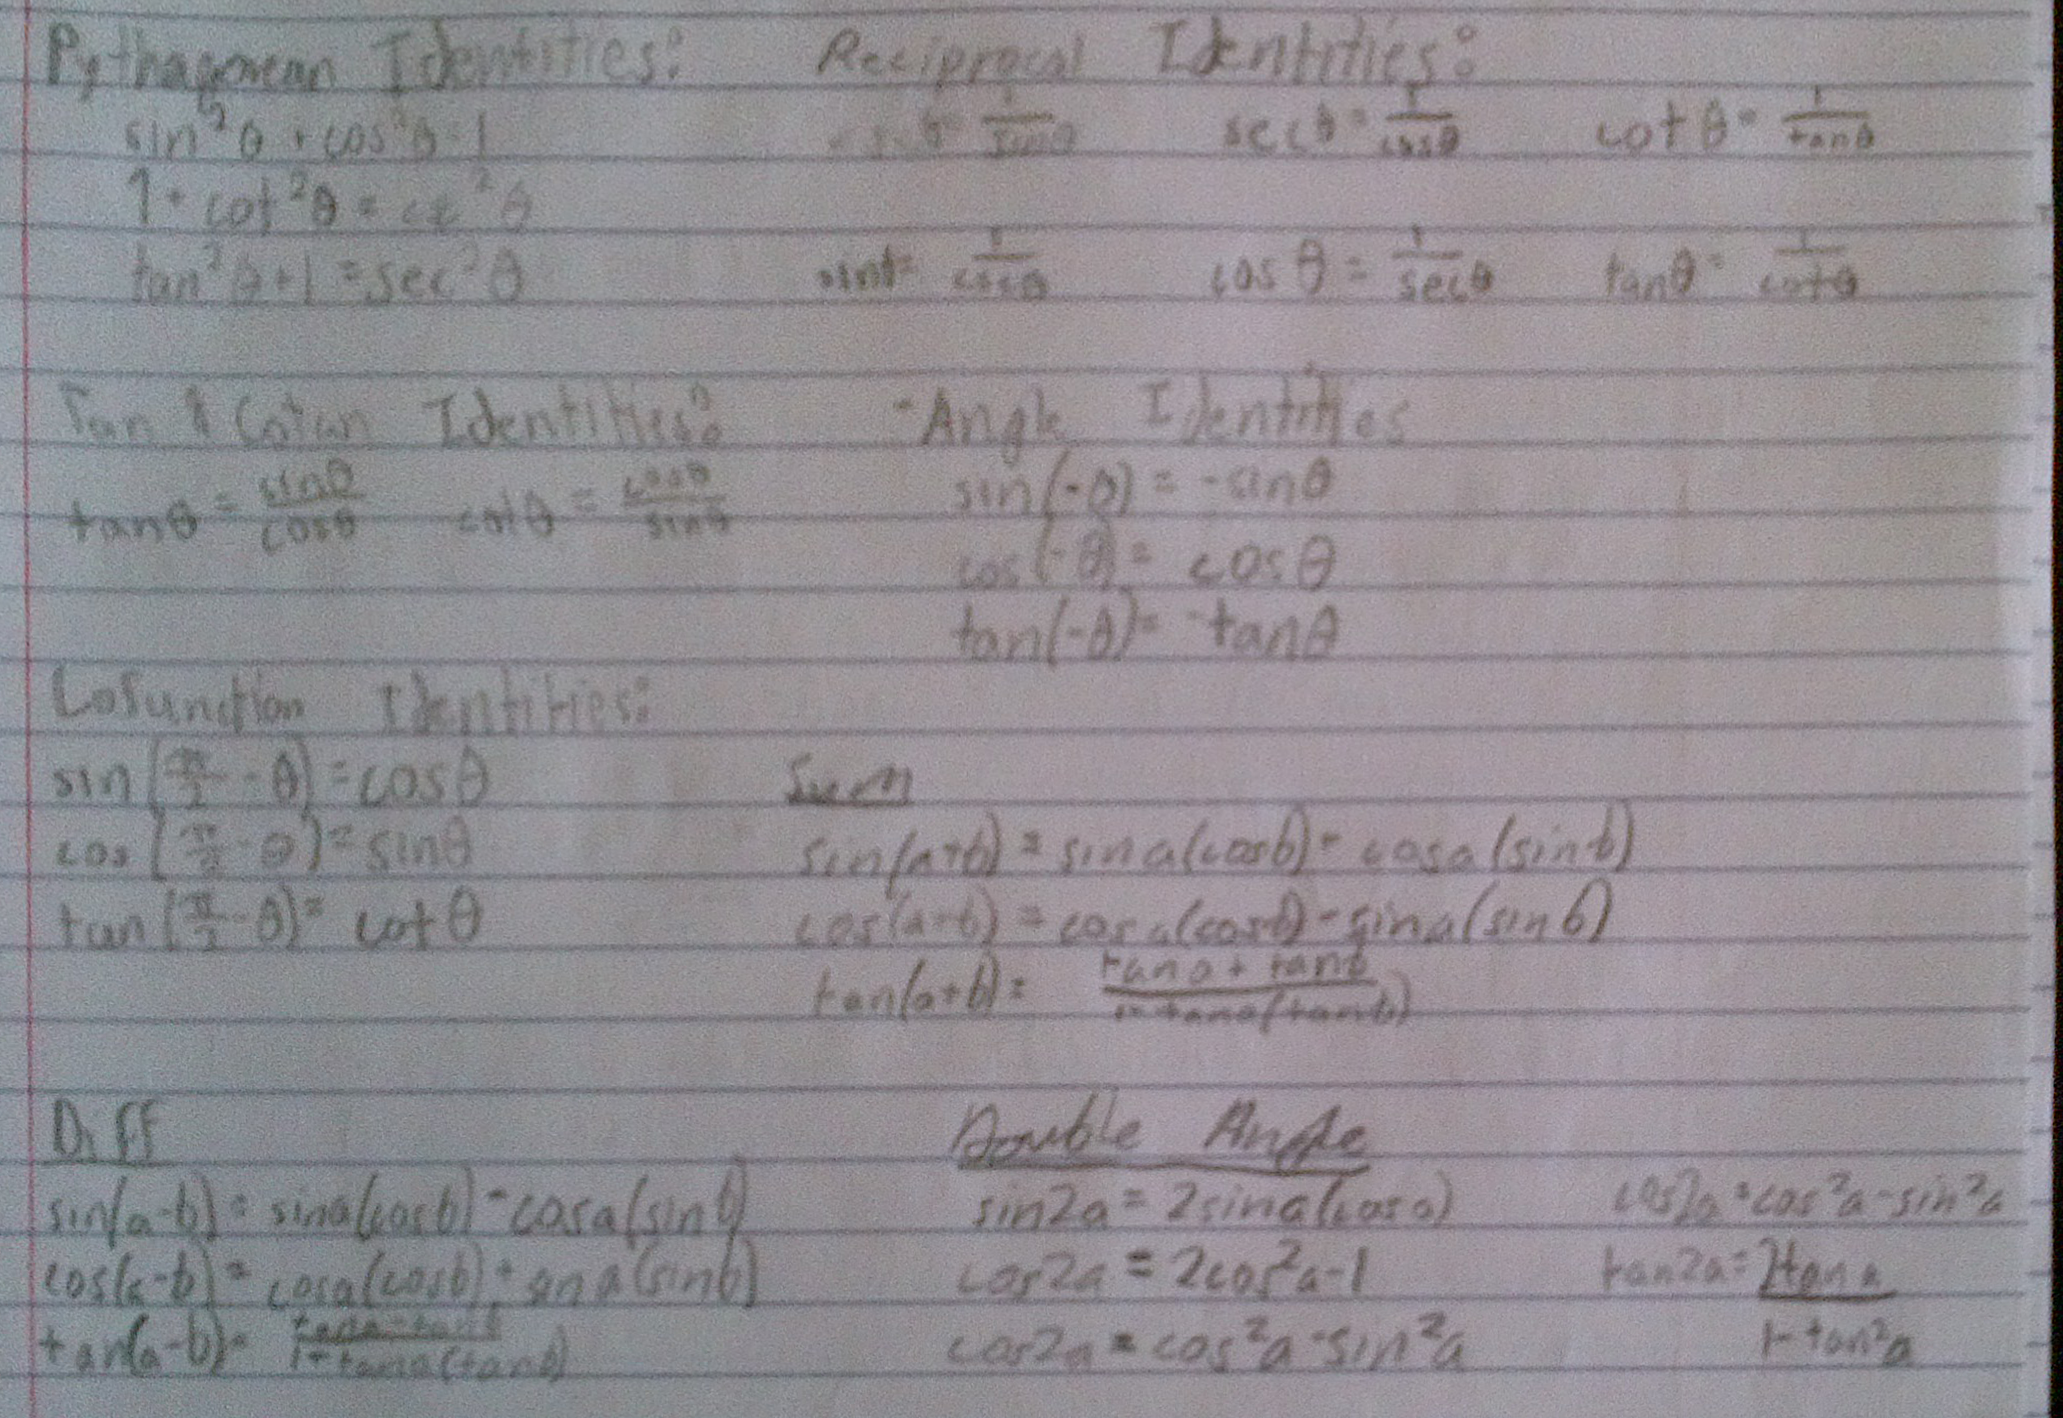 Pythagorean Identities:
sin²θ + cos²θ = 1
1 + cot²θ = csc²θ
tan²θ + 1 = sec²θ
Reciprocal Identities:
θ = 1/sinθ secθ = 1/cosθ cotθ = 1/tanθ
sinθ = 1/cscθ cosθ = 1/secθ tanθ = 1/cotθ
Tan & Cotan Identities:
tanθ = sinθ/cosθ cotθ = cosθ/sinθ
-Angle Identities
sin(-θ) = -sinθ
cos(-θ) = cosθ
tan(-θ) = -tanθ
Cofunction Identities:
sin(π/2 - θ) = cosθ
cos(π/2 - θ) = sinθ
tan(π/2 - θ) = cotθ
Sum
sin(a+b) = sina(cosb) + cosa(sinb)
cos(a+b) = cosa(cosb) - sina(sinb)
tan(a+b) = tana + tanb / 1 - tana(tanb)
Diff
sin(a-b) = sina(cosb) - cosa(sinb)
cos(a-b) = cosa(cosb) + sina(sinb)
tan(a-b) = tana - tanb / 1 + tana(tanb)
Double Angle
sin2a = 2sina(cosa) cos2a = cos²a - sin²a
cos2a = 2cos²a - 1 tan2a = 2tana / 1 - tan²a
cos2a = cos²a - sin²a